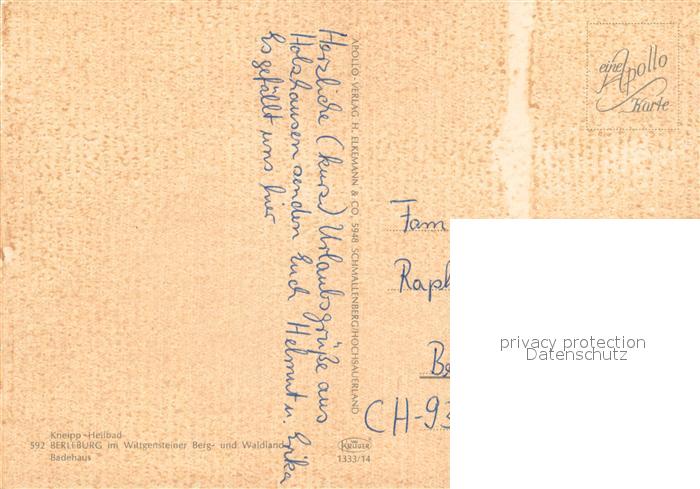 Herzliche (kurze) Urlaubsgrüße aus
Holzhausen senden Euch Helmut u. Erika
Es gefällt uns hier
APOLLO-VERLAG H. ELKEMANN & CO, 5948 SCHMALLENBERG/HOCHSAUERLAND
eine Apollo
Karte
Fam
Raph
CH-93
privacy protection
Datenschutz
Kneipp-Heilbad
592 BERLEBURG im Wittgensteiner Berg- und Waldland
Badehaus
KRÜGER
1333/14